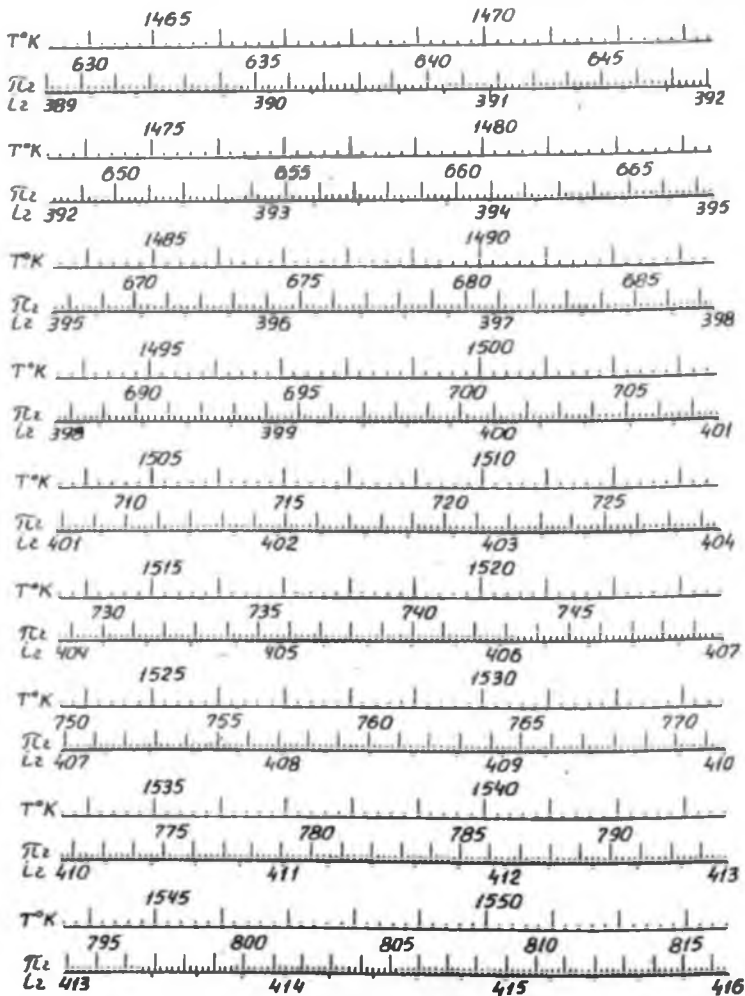 1465 1470
T°K
630 635 640 645
πг
iг 389 390 391 392
1475 1480
T°K
650 655 660 665
πг
iг 392 393 394 395
1485 1490
T°K
670 675 680 685
πг
iг 395 396 397 398
1495 1500
T°K
690 695 700 705
πг
iг 398 399 400 401
1505 1510
T°K
710 715 720 725
πг
iг 401 402 403 404
1515 1520
T°K
730 735 740 745
πг
iг 404 405 406 407
1525 1530
T°K
750 755 760 765 770
πг
iг 407 408 409 410
1535 1540
T°K
775 780 785 790
πг
iг 410 411 412 413
1545 1550
T°K
795 800 805 810 815
πг
iг 413 414 415 416